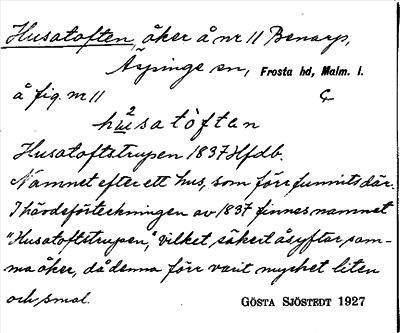 Husatoften, åker å nr 11 Benarp,
Äspinge sn, Frosta hd, Malm. l.
å fig. nr 11
husatòftan
Husatoftstrupen 1837 Hfdb.
Namnet efter ett hus, som förr funnits där.
I hävdeförteckningen av 1837 finnes namnet
"Husatoftstrupen", vilket säkert åsyftar sam-
ma åker, då denna förr varit mycket liten
och smal.
GÖSTA SJÖSTEDT 1927